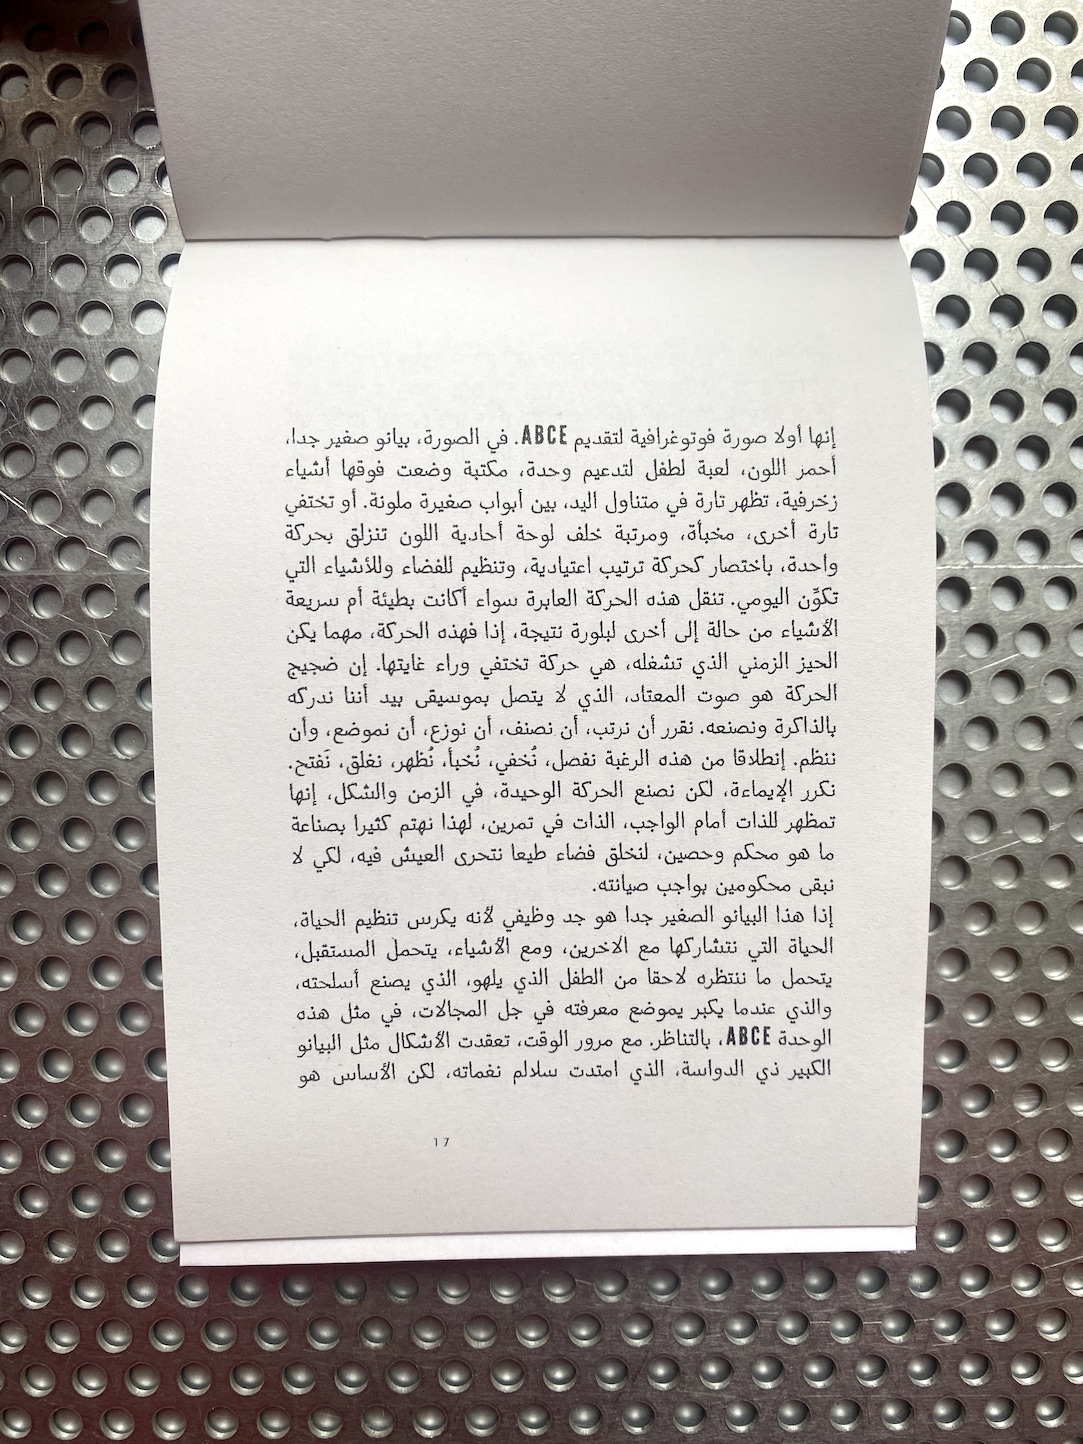 إنها أولا صورة فوتوغرافية لتقديم ABCE. في الصورة، بيانو صغير جدا،
أحمر اللون، لعبة لطفل لتدعيم وحدة، مكتبة وضعت فوقها أشياء
زخرفية، تظهر تارة في متناول اليد، بين أبواب صغيرة ملونة. أو تختفي
تارة أخرى، مخبأة، ومرتبة خلف لوحة أحادية اللون تنزلق بحركة
واحدة، باختصار كحركة ترتيب اعتيادية، وتنظيم للفضاء وللأشياء التي
تكوِّن اليومي. تنقل هذه الحركة العابرة سواء أكانت بطيئة أم سريعة
الأشياء من حالة إلى أخرى لبلورة نتيجة، إذا فهذه الحركة، مهما يكن
الحيز الزمني الذي تشغله، هي حركة تختفي وراء غايتها. إن ضجيج
الحركة هو صوت المعتاد، الذي لا يتصل بموسيقى بيد أننا ندركه
بالذاكرة ونصنعه. نقرر أن نرتب، أن نصنف، أن نوزع، أن نموضع، وأن
ننظم. إنطلاقا من هذه الرغبة نفصل، نُخفي، نُخبأ، نُظهر، نغلق، نَفتح.
نكرر الإيماءة، لكن نصنع الحركة الوحيدة، في الزمن والشكل، إنها
تمظهر للذات أمام الواجب، الذات في تمرين، لهذا نهتم كثيرا بصناعة
ما هو محكم وحصين، لنخلق فضاء طيعا نتحرى العيش فيه، لكي لا
نبقى محكومين بواجب صيانته.
إذا هذا البيانو الصغير جدا هو جد وظيفي لأنه يكرس تنظيم الحياة،
الحياة التي نتشاركها مع الاخرين، ومع الأشياء، يتحمل المستقبل،
يتحمل ما ننتظره لاحقا من الطفل الذي يلهو، الذي يصنع أسلحته،
والذي عندما يكبر يموضع معرفته في جل المجالات، في مثل هذه
الوحدة ABCE، بالتناظر. مع مرور الوقت، تعقدت الأشكال مثل البيانو
الكبير ذي الدواسة، الذي امتدت سلالم نغماته، لكن الأساس هو
17